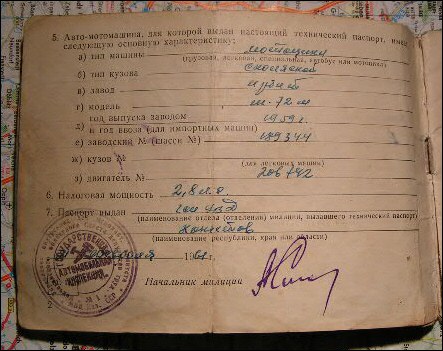 5. Авто-мотомашина, для которой выдан настоящий технический паспорт, имеет
следующую основную характеристику:
а) тип машины мотоцикл
(грузовая, легковая, специальная, автобус или мотоцикл)
б) тип кузова с коляской
в) завод
г) модель М-72 м
д) год выпуска заводом 1959 г.
и год ввоза (для импортных машин)
е) заводский № (шасси №) 189344
ж) кузов №
(для легковых машин)
з) двигатель № 206742
6. Налоговая мощность 2,8 л.с.
7. Паспорт выдан
(наименование отдела (отделения) милиции, выдавшего технический паспорт)
(наименование республики, края или области)
1961 г.
Начальник милиции